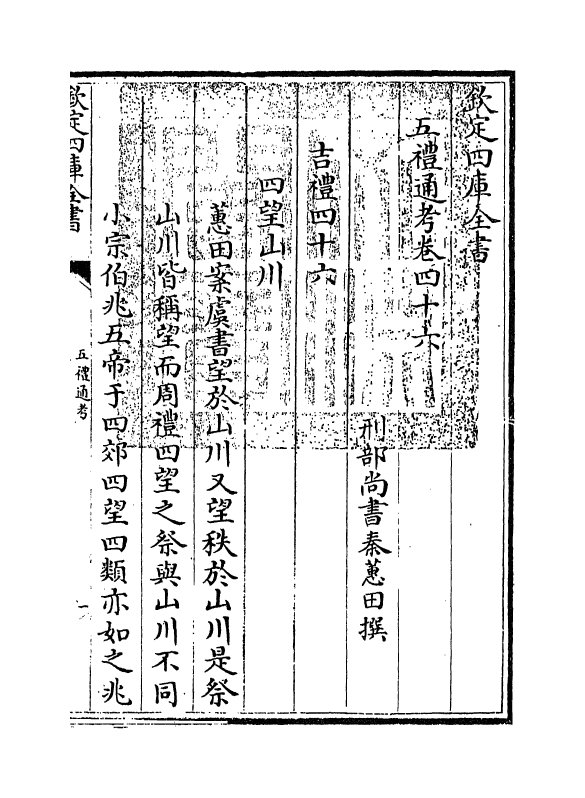 欽定四庫全書
五禮通考卷四十六
刑部尚書秦蕙田撰
吉禮四十六
四望山川
蕙田案虞書望於山川又望秩於山川是祭
山川皆稱望而周禮四望之祭與山川不同
小宗伯兆五帝于四郊四望四類亦如之兆
欽定四庫全書
五禮通考
一